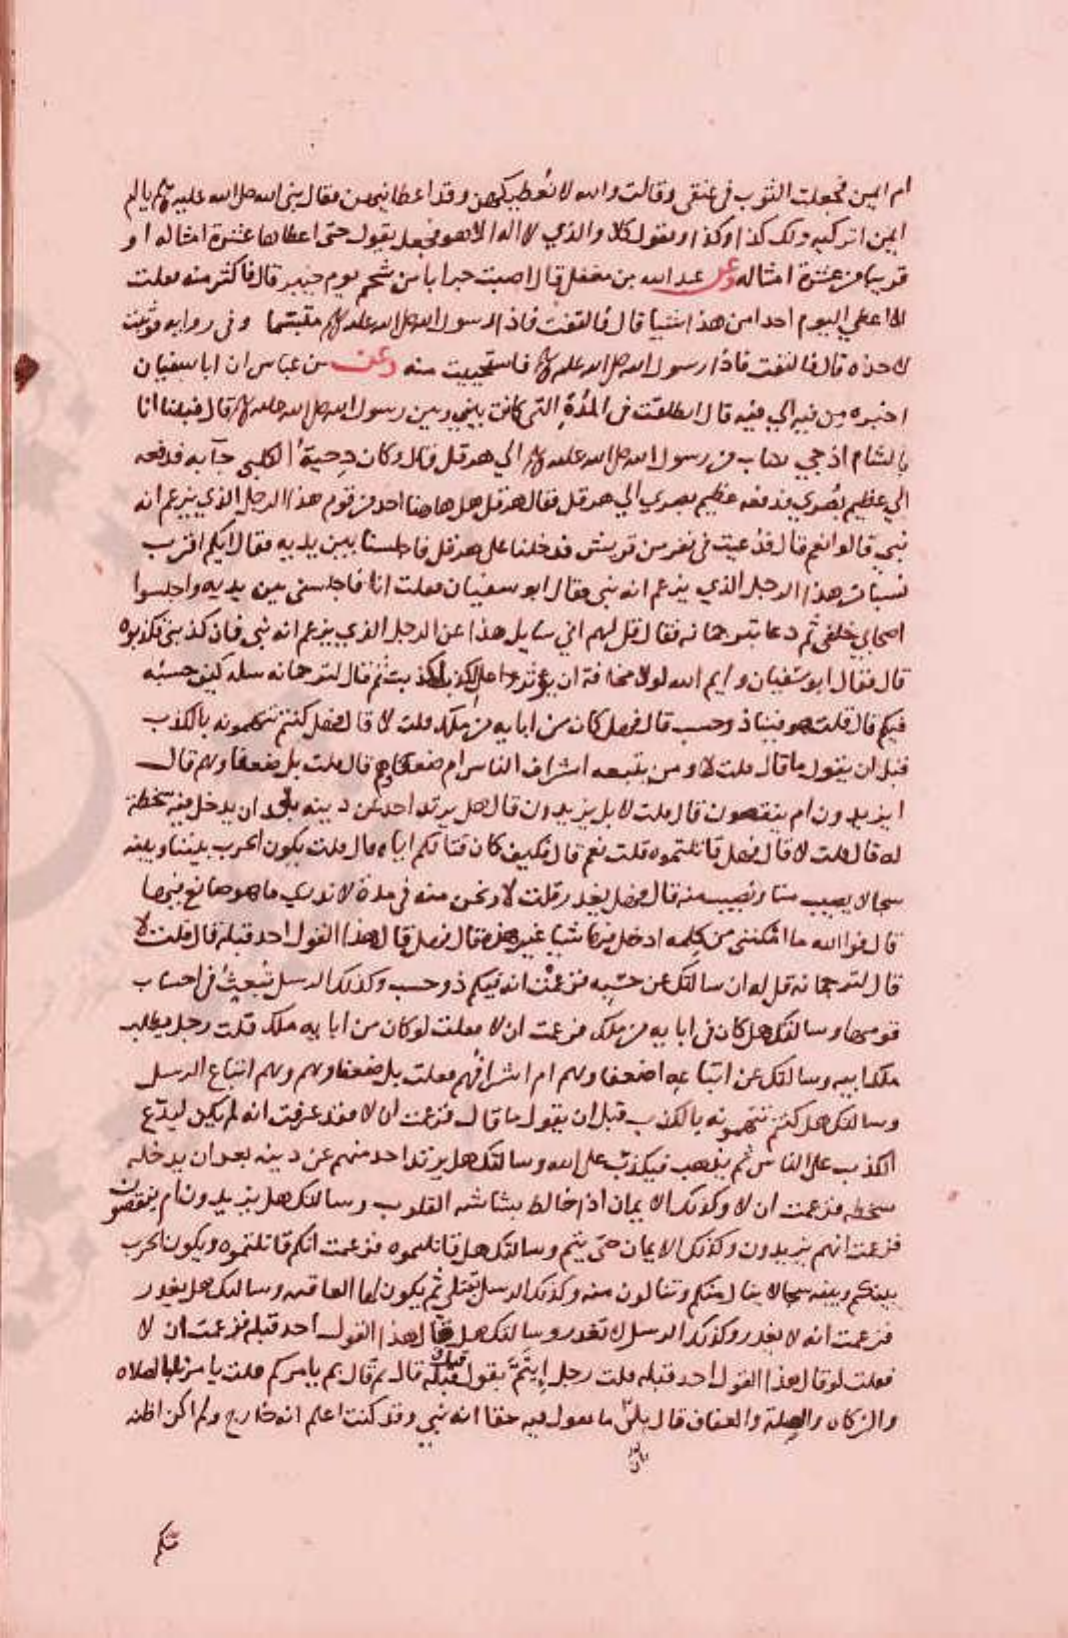 ام ايمن فجعلت الثوب في عنقي وقالت والله لا نُعطيكهن وقد اعطانيهن فقال نبي الله صلى الله عليه وسلم يا ام
ايمن اتركيه ولك كذا وكذا وتقول كلا والذي لا اله الا هو فجعل يقول حتى اعطاها عشرة امثاله او
قريبا من عشرة امثاله وعن عبد الله بن مغفل قال اصبت جرابا من شحم يوم خيبر قال فالتزمته فقلت
لا اعطي اليوم احدا من هذا شيا قال فالتفت فاذا رسول الله صلى الله عليه وسلم متبسما وفي رواية فوثبت
لاخذه قال فالتفت فاذا رسول الله صلى الله عليه وسلم فاستحييت منه وعن بن عباس ان ابا سفيان
اخبره من فيه الي فيه قال انطلقت في المُدةِ التي كانت بيني وبين رسول الله صلى الله عليه وسلم قال فبينا انا
بالشام اذ جي بكتاب من رسول الله صلى الله عليه وسلم الي هرقل قال وكان دِحيةُ الكلبي جآ به فدفعه
الي عظيم بُصري فدفعه عظيم بصري الي هرقل فقال هرقل هل هاهنا احد من قوم هذا الرجل الذي يزعم انه
نبي قالوا نعم قال فدُعيت في نفر من قريش فدخلنا على هرقل فاجلسنا بين يديه فقال ايكم اقرب
نسبا من هذا الرجل الذي يزعم انه نبي فقال ابو سفيان فقلت انا فاجلسني بين يديه واجلسوا
اصحابي خلفي ثم دعا بترجمانه فقال قل لهم اني سايل هذا عن الرجل الذي يزعم انه نبي فان كذبني فكذبوه
قال فقال ابو سُفيان وايم الله لولا مخافة ان يوثروا علي الكذب لكذبت ثم قال لترجمانه سله كيف حسبُه
فيكم قال قلت هو فينا ذو حسب قال فهل كان من ابايه من ملك قلت لا قال فهل كنتم تتهمونه بالكذب
قبل ان يقول ما قال قلت لا ومن يتبعه اشراف الناس ام ضعفاوهم قال قلت بل ضعفاوهم قال
ايزيدون ام ينقصون قال قلت لا بل يزيدون قال هل يرتد احد عن دينه بعد ان يدخل فيه سخطة
له قال قلت لا قال فهل قاتلتموه قلت نعم قال فكيف كان قتالكم اياه قال قلت يكون الحرب بيننا وبينه
سجالا يصيب منا ونصيب منه قال فهل يغدر قلت لا ونحن منه في مدة لا ندري ما هو صانع فيها
قال فوالله ما امكنني من كلمه ادخل فيها شيا غير هذه قال فهل قال هذا القول احد قبله قال قلت لا
قال لترجمانه قل له ان سالتك عن حسبه فزعمت انه فيكم ذو حسب وكذلك الرسل تُبعثُ في احساب
قومها وسالتك هل كان في ابايه من ملك فزعمت ان لا فقلت لو كان من ابايه ملك قلت رجل يطلب
ملك ابيه وسالتك عن اتباعه اضعفاوهم ام اشرافُهم فقلت بل ضعفاوهم وهم اتباع الرسل
وسالتك هل كنتم تتهمونه بالكذب قبل ان يقول ما قال فزعمت ان لا فقد عرفت انه لم يكن ليدَع
الكذب على الناس ثم يذهب فيكذب على الله وسالتك هل يرتد احد منهم عن دينه بعد ان يدخله
سخطه فزعمت ان لا وكذلك الايمان اذا خالط بشاشه القلوب وسالتك هل يزيدون ام ينقصون
فزعمت انهم يزيدون وكذلك الايمان حتى يتم وسالتك هل قاتلتموه فزعمت انكم قاتلتموه ويكون الحرب
بينكم وبينه سجالا ينال منكم وتنالون منه وكذلك الرسل تبتلى ثم يكون لها العاقبه وسالتك هل يغدر
فزعمت انه لا يغدر وكذلك الرسل لا تغدر وسالتك هل قال هذا القول احد قبله فزعمت ان لا
فقلت لو قال هذا القول احد قبله قلت رجل ايتَمَّ بقول قيل قبله قال ثم قال بم يامركم قلت يامرنا بالصلاه
والزكاه والصلة والعفاف قال ان يكن ما تقول فيه حقا انه نبي وقد كنت اعلم انه خارج ولم اكن اظنه
منكم